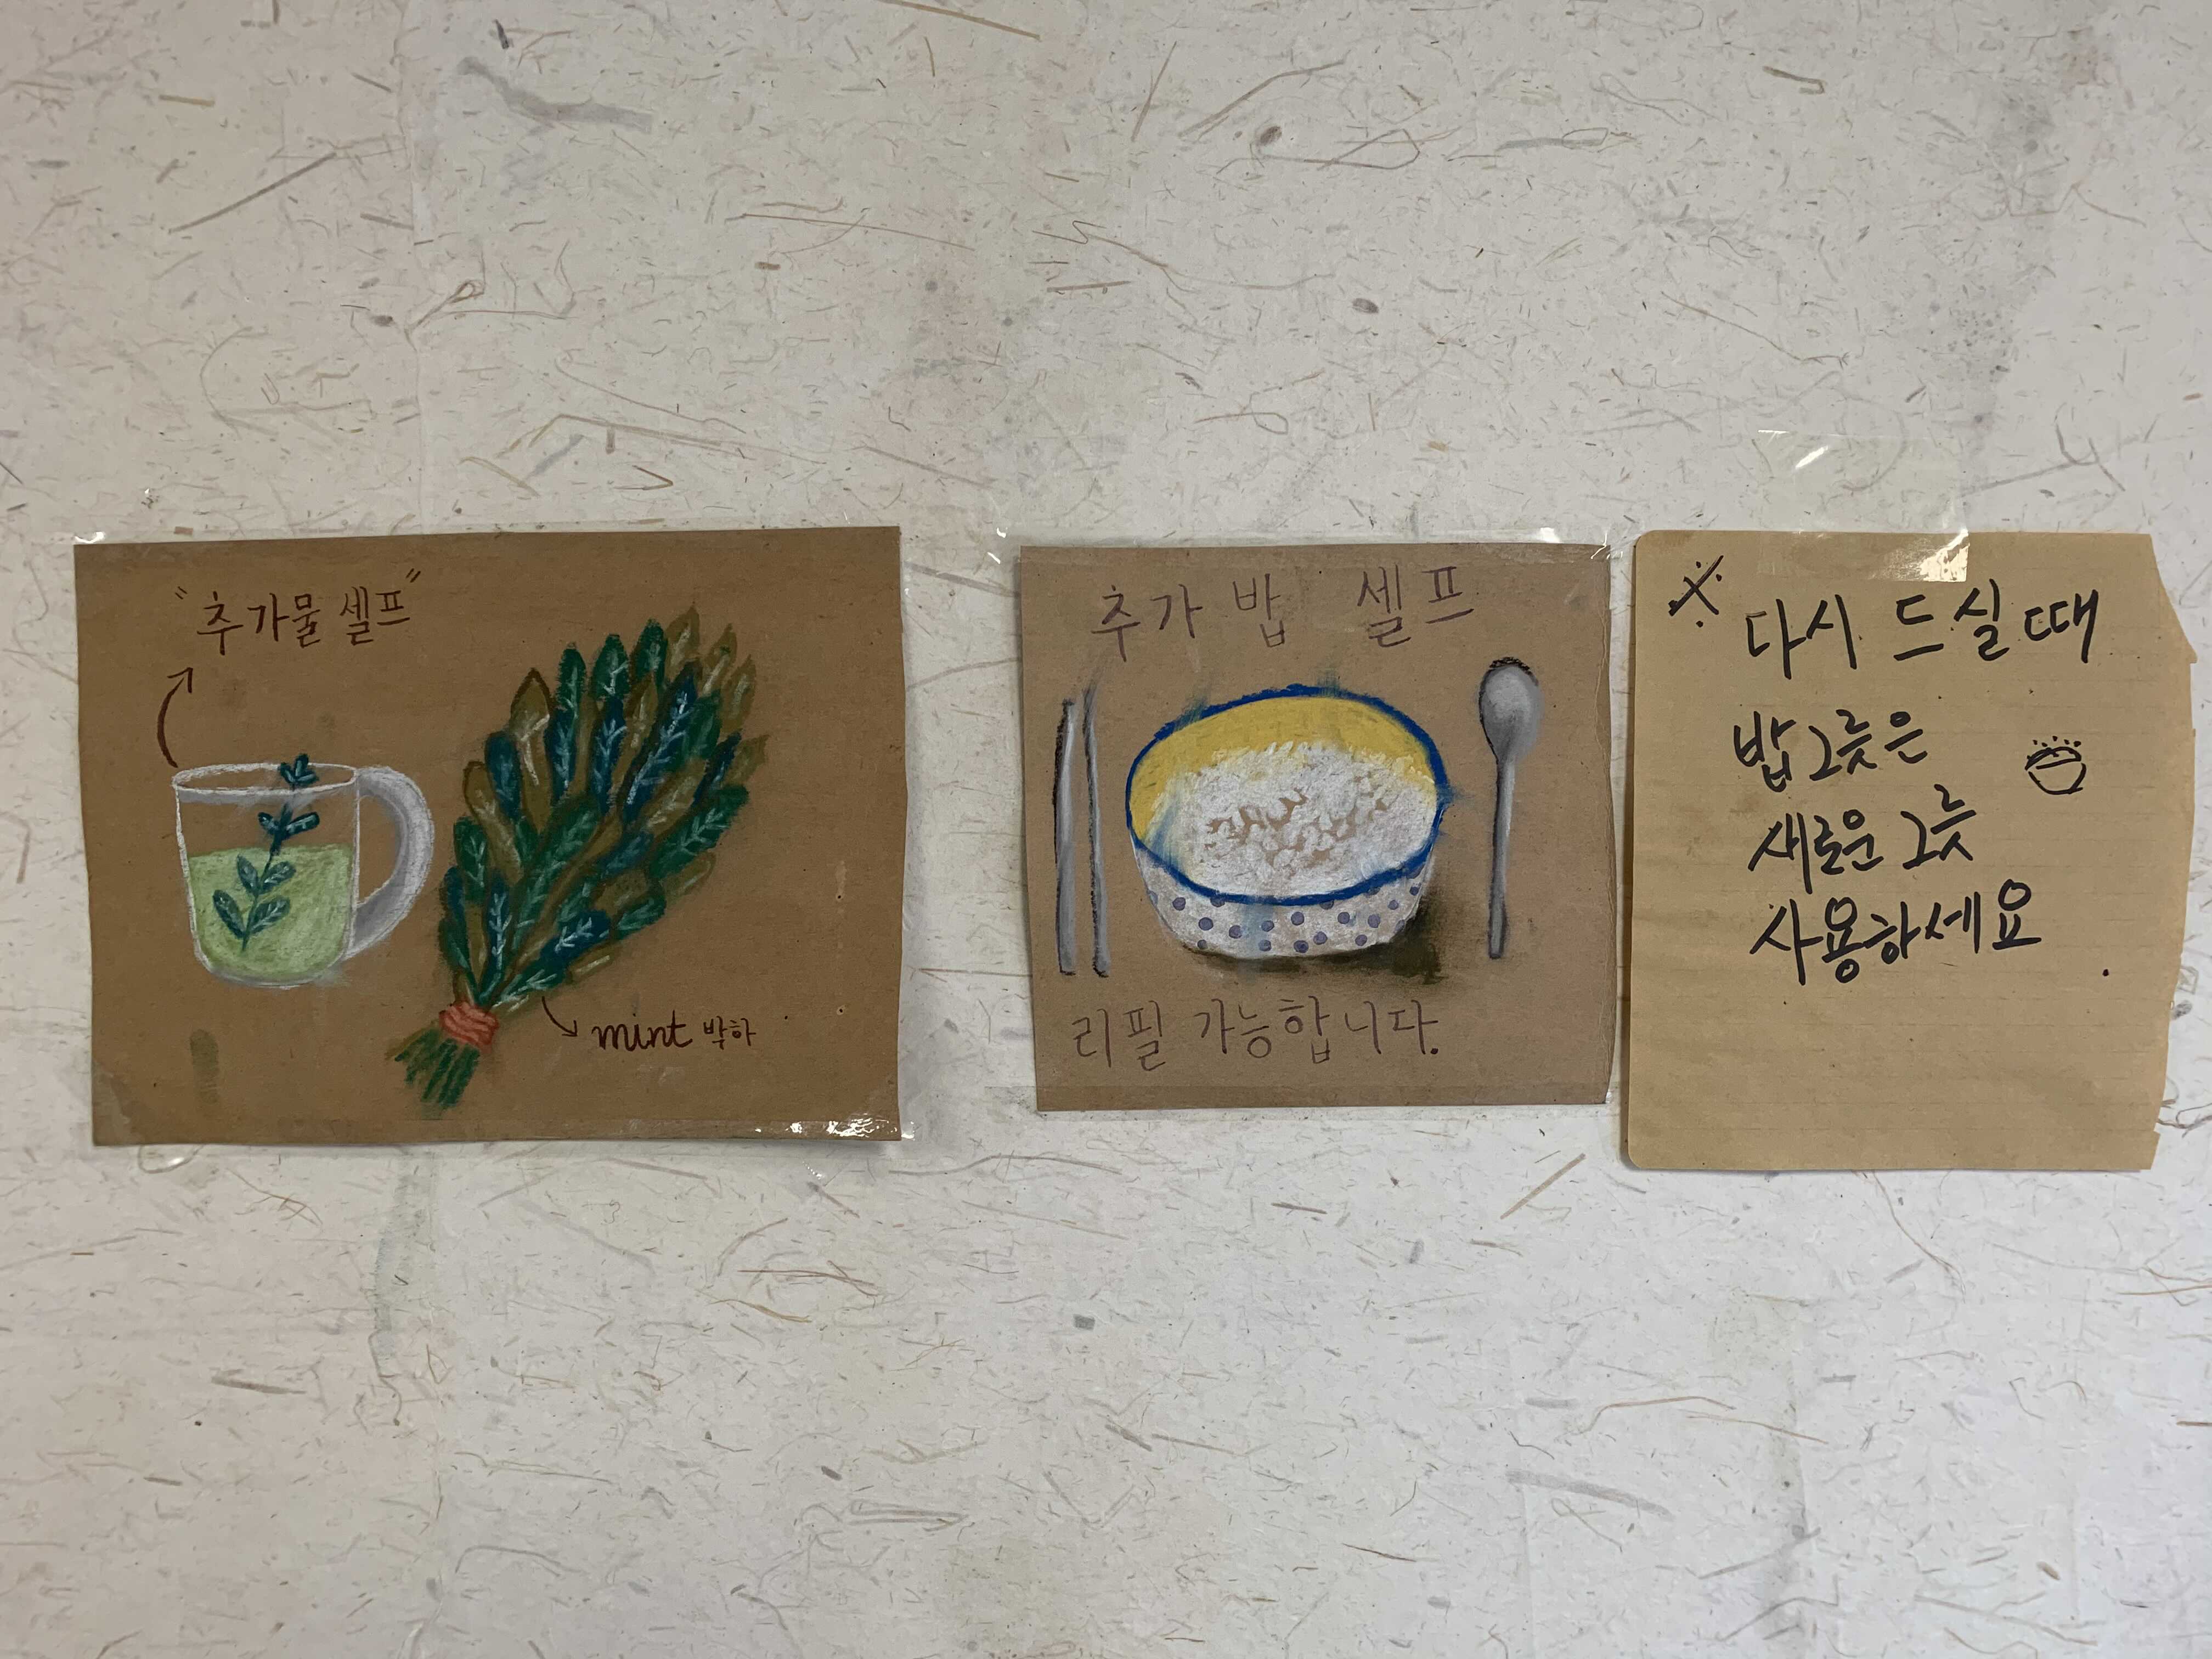 "추가물 셀프"
mint 박하
추가 밥 셀프
리필 가능합니다.
※ 다시 드실 때
밥그릇은
새로운 그릇
사용하세요.